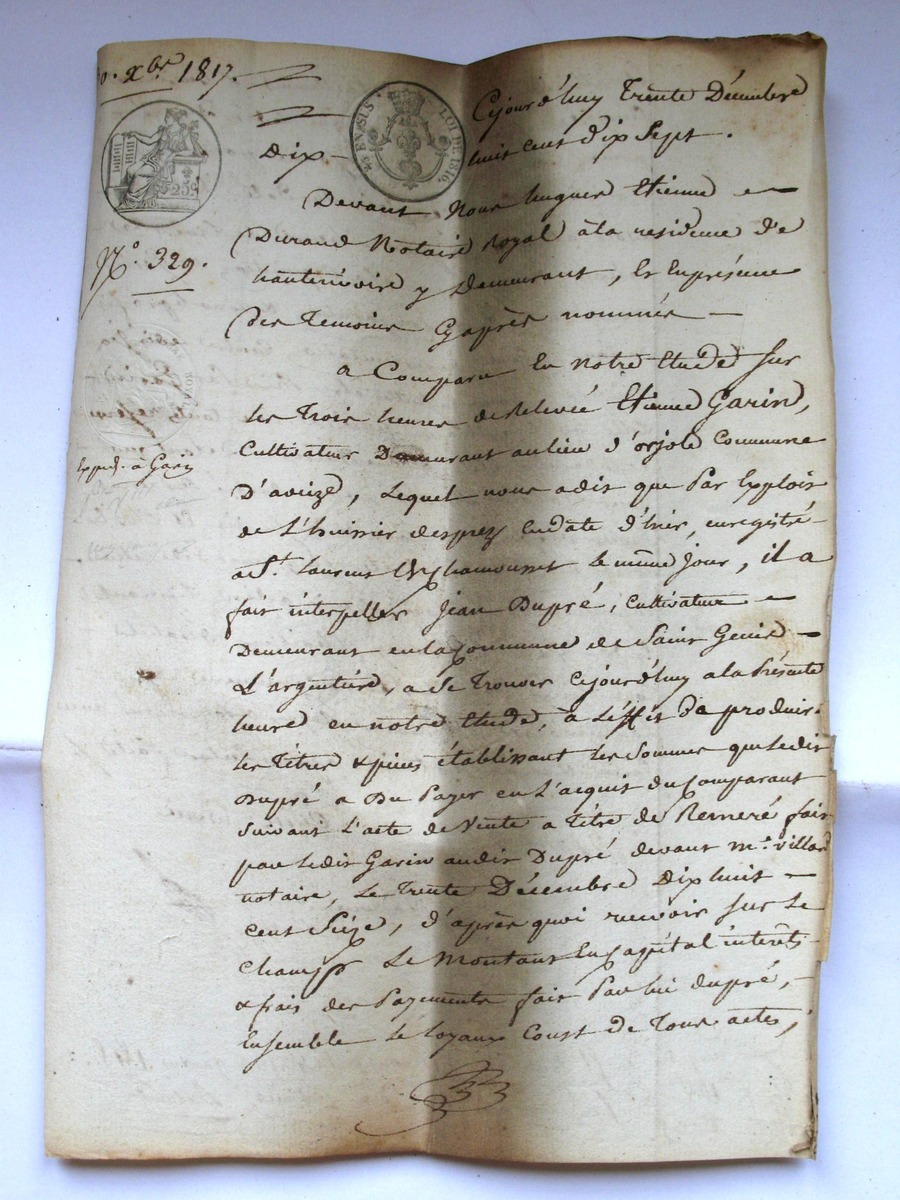 30. Xbre 1817.
25c
25 EN SUS LOI DE 1816.
No. 329.
Expéd. à Garin
Cejourd'huy Trente Décembre
Dix-huit cent dix Sept.
Devant Nous hugues Etienne
Durand Notaire Royal à la residence de
hauterivoire y Demeurant, Et En présence
Des Temoins Cyaprès nommés —
a Comparu En notre Etude Sur
les Trois heures de Relevée Etienne Garin,
Cultivateur Demeurant au lieu d'orjole Commune
D'aveize, Lequel nous a dit que Par Exploit
de L'huissier desprez En date d'hier, enregistré
a St. Laurent de Chamousset le même Jour, il a
fait interpeller Jean Dupré, Cultivateur
Demeurant en la Commune de Saint Genis
L'argentière, a Se Trouver Cejourd'huy a la Présente
heure en notre Etude, à L'effet de produire
les Titres & pièces établissant les Sommes que ledit
Dupré a Du Payer en L'acquit du Comparant
Suivant L'acte de Vente a Titre de Remeré fait
par ledit Garin audit Dupré devant me. Villard
notaire, Le Trente Décembre Dix huit
cent Sèize, d'après quoi recevoir Sur Le
Champ Le Montant En Capital interêts
& frais des Payements fait Par lui dupré,
Ensemble Le loyaux Coust de Tous actes,